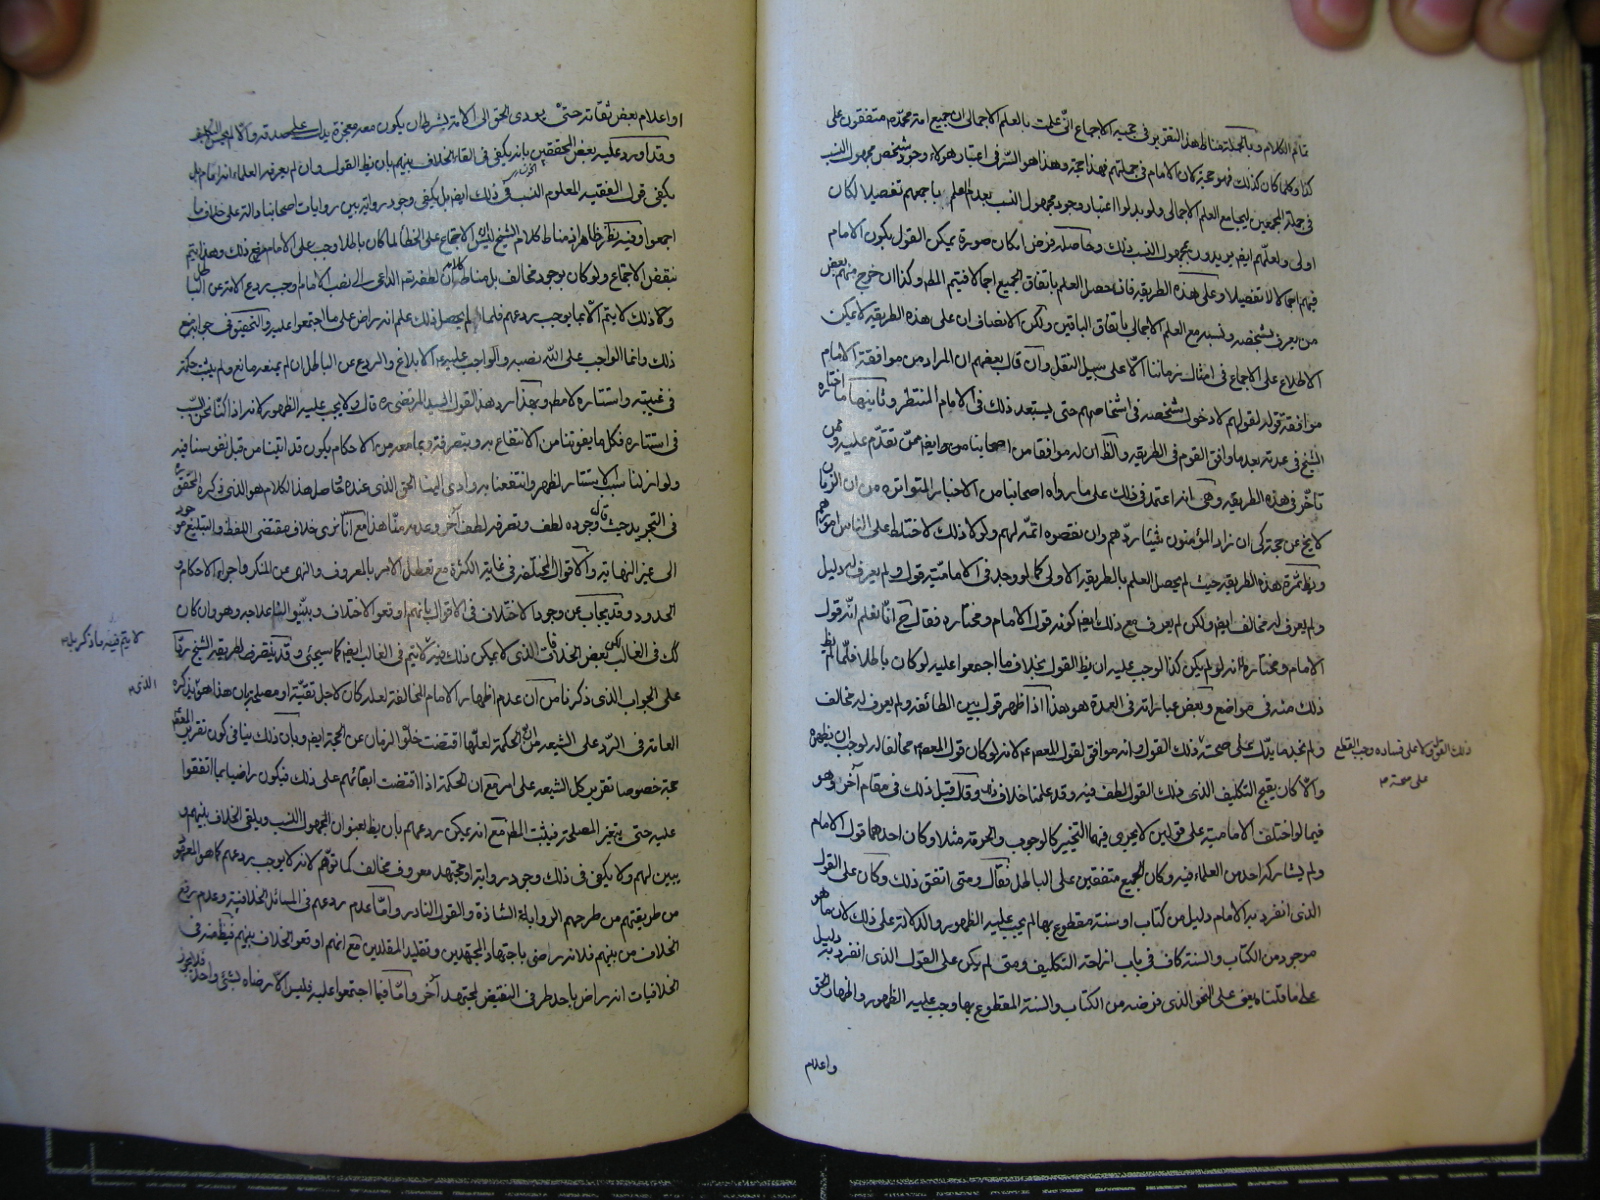 تمام الكلام وبالجملة مناط هذا التقرير في حجية الاجماع اني علمت بالعلم الاجمالي ان جميع امة محمد متفقون على
كذا وكلما كان كذلك فهو حجة لان الامام في جملتهم فهذا حجة وهذا هو السر في اعتبار هؤلاء وجود شخص مجهول النسب
في جملة المجمعين ليجامع العلم الاجمالي ولو بدلوا اعتبار وجود مجهول النسب بعدم العلم باجمعهم تفصيلا لكان
اولى ولعلهم ايضا يريدون بمجهول النسب ذلك وحاصله فرض امكان صورة يمكن القول بكون الامام
فيهم اجمالا لا تفصيلا وعلى هذه الطريقة فان حصل العلم باتفاق الجميع اجمالا فيتم المط وكذا ان خرج منهم بعض
من يعرف بشخصه ونسبه مع العلم الاجمالي باتفاق الباقين ولكن الانصاف ان على هذه الطريقة لا يمكن
الاطلاع على الاجماع في امثال زماننا الا على سبيل النقل وان قال بعضهم ان المراد من موافقة الامام
موافقة قوله لقولهم لا دخول شخصه في اشخاصهم حتى يستبعد ذلك في الامام المنتظر وثانيهما ما اختاره
الشيخ في عدته بعد ما وافق القوم في الطريقة والظ ان له موافقا من اصحابنا ايضا ممن تقدم عليه وممن
تأخر في هذه الطريقة وهي انه اعتمد في ذلك على ما رواه اصحابنا من الاخبار المتواترة من ان الزمان
لا يخ عن حجة كي ان زاد المؤمنون شيئا ردهم وان نقصوه اتمه لهم ولولا ذلك لاختلط على الناس امورهم
ويظ ثمرة هذه الطريقة حيث لم يحصل العلم بالطريقة الاولى كما لو وجد في الامامية قول ولم يعرف له دليل
ولم يعرف له مخالف ايضا ولكن لم يعرف مع ذلك ايضا كونه قول الامام ومختاره فقال ح انا نعلم انه قول
الامام ومختاره لانه لو لم يكن كذا لوجب عليه ان يظ القول بخلاف ما اجمعوا عليه لو كان باطلا فلما لم يظ
ذلك منه في مواضع وبعض عباراته في العدة هو هذا اذا ظهر قول بين الطائفة ولم يعرف له مخالف
ولم نجد ما يدل على صحة ذلك القول وانه موافق لقول المعصوم لانه لو كان قول المعصوم مخالفا له لوجب ان يظهره
ذلك القول ولا على فساده وجب القطع
على صحة
والا كان يقبح التكليف الذي ذلك القول لطف فيه وقد علمنا خلاف ذلك وقال قبل ذلك في مقام آخر وهو
فيما لو اختلف الامامية على قولين لا يجري فيهما التخيير كالوجوب والحرمة مثلا وكان احدهما قول الامام
ولم يشاركه احد من العلماء فيه وكان الجميع متفقين على الباطل فقال ومتى اتفق ذلك وكان على القول
الذي انفرد به الامام دليل من كتاب او سنة مقطوع بها لم يجب عليه الظهور ولا الدلالة على ذلك لان ما هو
موجود من الكتاب والسنة كاف في باب ازاحة التكليف ومتى لم يكن على القول الذي انفرد به دليل
على ما قلناه يعني على النحو الذي فرضه من الكتاب والسنة المقطوع بها وجب عليه الظهور واظهار الحق
واعلام
او اعلام بعض ثقاته حتى يؤدي الحق الى الامة بشرط ان يكون معه معجزة يدل على صدقه والا لم يحسن التكليف
وقد اورد عليه بعض المحققين بانه يكفي في القاء الخلاف بينهم بان يظ القول وان لم يعرفه العلماء انه امام بل
يكفي قول الفقيه المعلوم النسب في ذلك ايضا بل يكفي وجود رواية بين روايات اصحابنا دالة على خلاف ما
اجمعوا وفيه نظر ظاهر اذ مناط كلام الشيخ ليس ان الاجتماع على الخطأ لما كان باطلا وجب على الامام رفع ذلك وهذا يتم
بنقض الاجماع ولو كان بوجود مخالف بل مناط كلامه ان لطفه تعالى الداعي الى نصب الامام وجب ردع الامة عن الباطل
وذلك لا يتم الا بما يوجب ردعهم فلما لم يحصل ذلك علم انه راض على ما اجتمعوا عليه والتحقيق في جوابه منع
ذلك وانما الواجب على الله نصبه والواجب عليه الابلاغ والردع عن الباطل ان لم يمنعه مانع ولم يثبت حكمة
في غيبته واستتاره لا مط وبهذا رد هذا القول السيد المرتضى ره قال ولا يجب عليه الظهور لانه اذا كنا نحن السبب
في استتاره فكلما يفوتنا من الانتفاع به وبتصرفه وبما معه من الاحكام يكون قد اتينا من قبل نفوسنا فيه
ولو ازلنا سبب الاستتار لظهر وانتفعنا به وادى الينا الحق الذي عنده وحاصل هذا الكلام هو الذي ذكره المحقق
في التجريد حيث قال وجوده لطف وتصرفه لطف آخر وعدمه منا هذا مع انا نرى خلاف مقتضى اللطف والتبليغ موجودا
الى غير النهاية والاقوال المختلفة في غاية الكثرة مع تعطل الامر بالمعروف والنهي عن المنكر واجراء الاحكام و
الحدود وقد يجاب عن وجود الاختلاف في الاقوال بانهم اوقعوا الاختلاف وبينوا لنا علاجه وهو وان كان
كك في الغالب لكن بعض الخلافات الذي لا يمكن ذلك فيه لا يتم في الغالب ايضا كما سيجئ وقد ينقرض لطريقة الشيخ ردا
لا يتم فيه ما ذكر بل
على الجواب الذي ذكرنا من ان عدم اظهار الامام المخالفة لعله كان لاجل تقية او مصلحة بان هذا هو الذي يذكره
الذي
العامة في الرد على الشيعة من ان الحكمة لعلها اقتضت خلو الزمان عن الحجة ايضا وبان ذلك ينافي كون تقرير المعصوم
حجة خصوصا تقرير كل الشيعة على امر مع ان الحكمة اذا اقتضت ابقائهم على ذلك فيكون راضيا بما اتفقوا
عليه حتى يتغير المصلحة فيثبت المط مع انه يمكن ردعهم بان يظ بعنوان المجهول النسب ويلقي الخلاف بينهم و
يبين لهم ولا يكفي في ذلك وجود رواية او مجتهد معروف مخالف كما توهم لانه لا يوجب ردعهم كما هو المعهود
من طريقتهم من طرحهم الرواية الشاذة والقول النادر واما عدم ردعهم في المسائل الخلافية وعدم رفع
الخلاف من بينهم فلانه راضي باجتهاد المجتهدين وتقليد المقلدين مع انهم اوقعوا الخلاف بينهم فيظ منه في
الخلافيات انه راض باحد طرفي النقيض لمجتهد آخر واما فيما اجتمعوا عليه فليس الا رضاه بشئ واحد